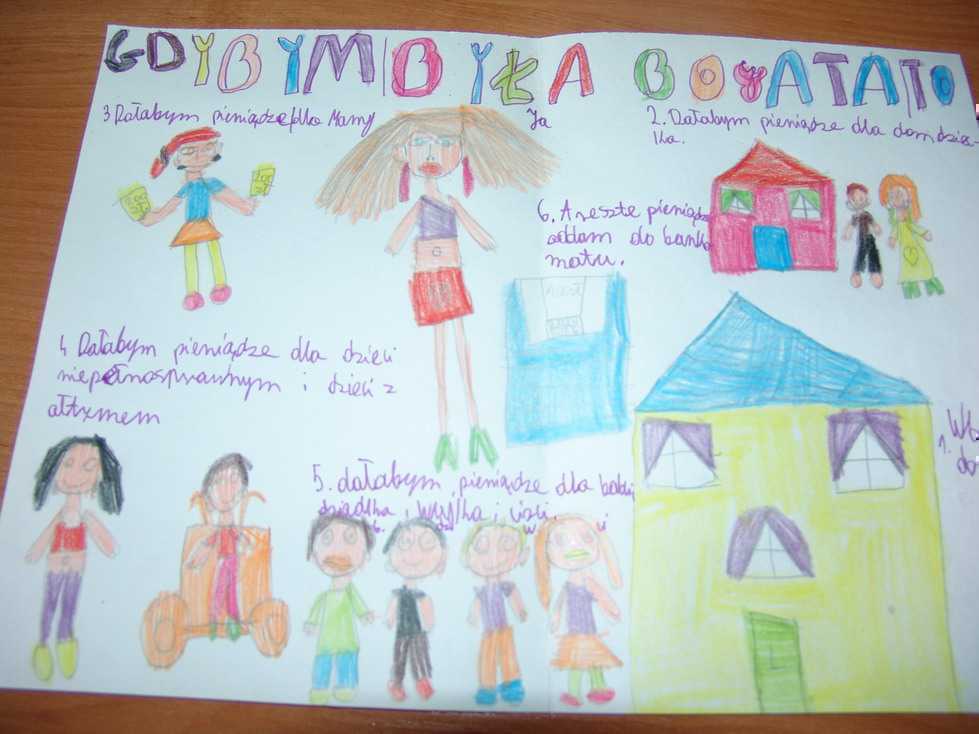 GDYBYM BYŁA BOGATA TO
3 Dałabym pieniądze dla Mamy
Ja
2. Dałabym pieniądze dla dom dziec-
ka.
6. A resztę pieniądze
oddam do banko
matu.
4 Dałabym pieniądze dla dzieci
niepełnosprawnym i dzieci z
ałtyzmem
5. dałabym pieniądze dla babci
dziadka, wujka i cioci.
1.